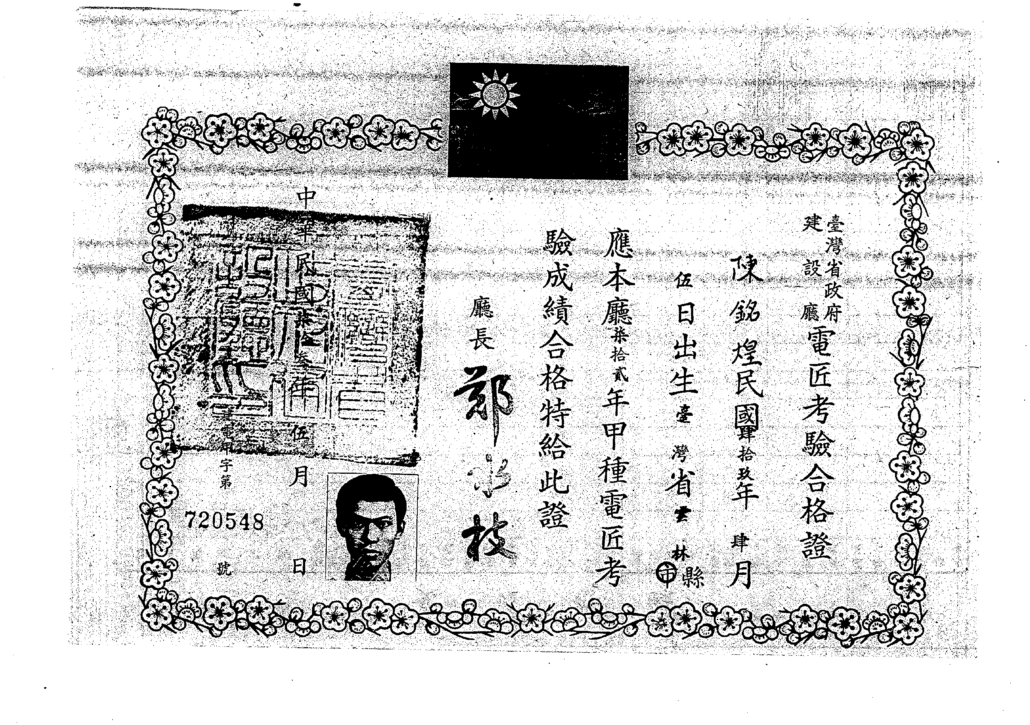 臺灣省政府
建設廳
電匠考驗合格證
陳銘煌民國肆拾玖年肆月
伍日出生臺灣省雲林縣市
應本廳柒拾貳年甲種電匠考
驗成績合格特給此證
廳長鄭水枝
中華民國柒拾叁年伍月日
字第
720548
號